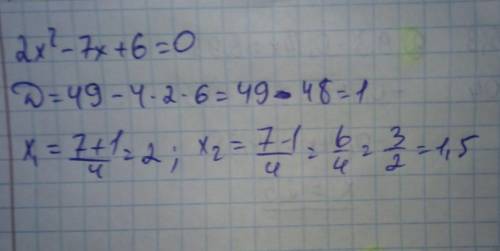 2x² - 7x + 6 = 0
D = 49 - 4 · 2 · 6 = 49 - 48 = 1
x₁ = \frac{7+1}{4} = 2 ; x₂ = \frac{7-1}{4} = \frac{6}{4} = \frac{3}{2} = 1,5